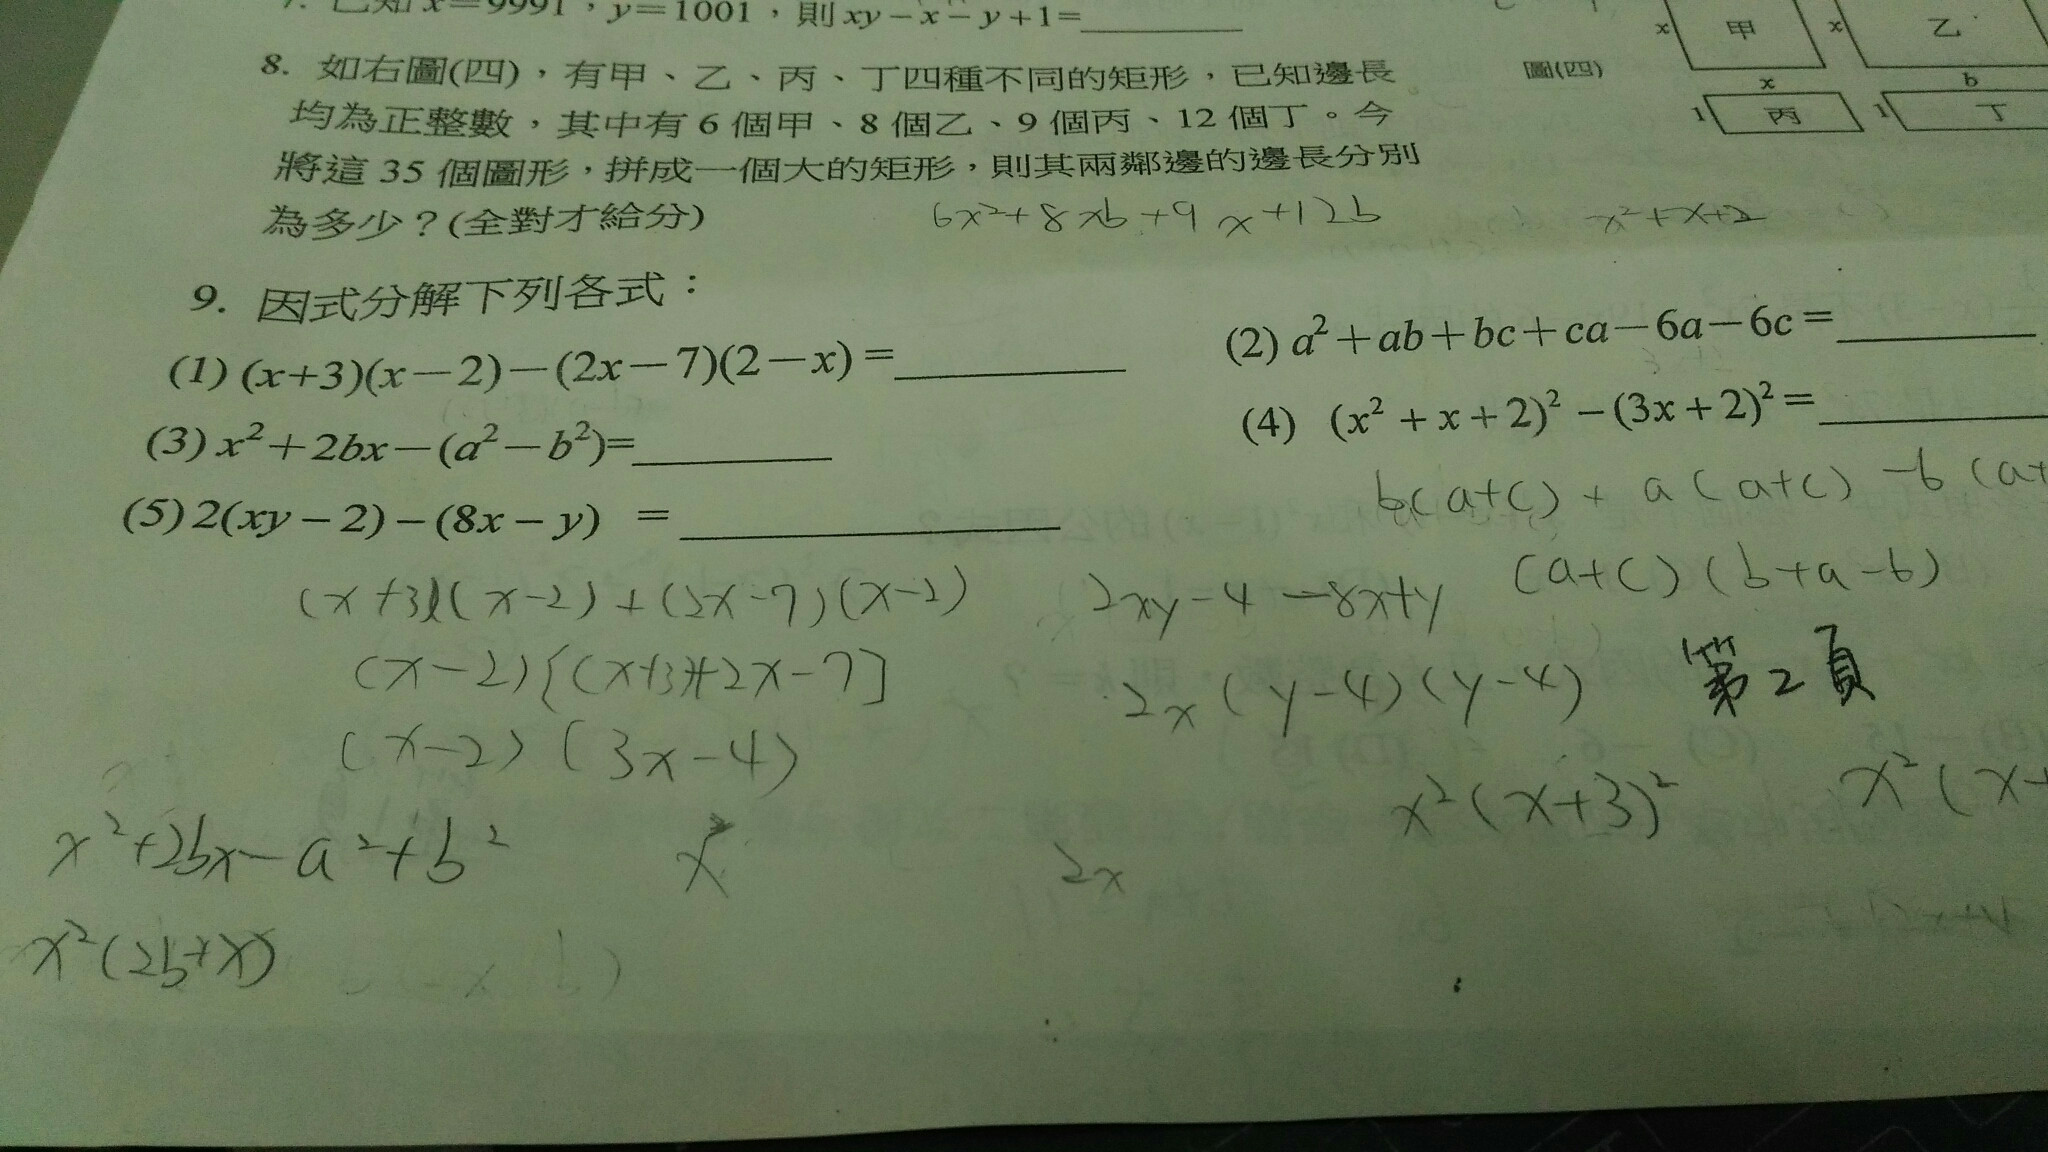 7. 已知 x＝9991，y＝1001，則 xy－x－y+1＝
8. 如右圖(四)，有甲、乙、丙、丁四種不同的矩形，已知邊長
均為正整數，其中有 6 個甲、8 個乙、9 個丙、12 個丁。今
將這 35 個圖形，拼成一個大的矩形，則其兩鄰邊的邊長分別
為多少？(全對才給分)
圖(四)
x 甲 x 乙
x b
1 丙 1 丁
6x²+8xb+9x+12b
x²+x+2
9. 因式分解下列各式：
(1) (x+3)(x－2)－(2x－7)(2－x)＝
(2) a²＋ab＋bc＋ca－6a－6c＝
(3) x²＋2bx－(a²－b²)=
(4) (x²＋x＋2)²－(3x＋2)²＝
(5) 2(xy－2)－(8x－y) ＝
b(a+c) + a(a+c) -6(a+
(a+c)(b+a-6)
(x+3)(x-2)+(2x-7)(x-2)
(x-2)[(x+3)+2x-7]
(x-2)(3x-4)
2xy-4-8x+y
2x(y-4)(y-4)
第2頁
x²(x+3)²
x²(x+
x²+2bx-a²+b²
x²
2x
x²(2b+x)